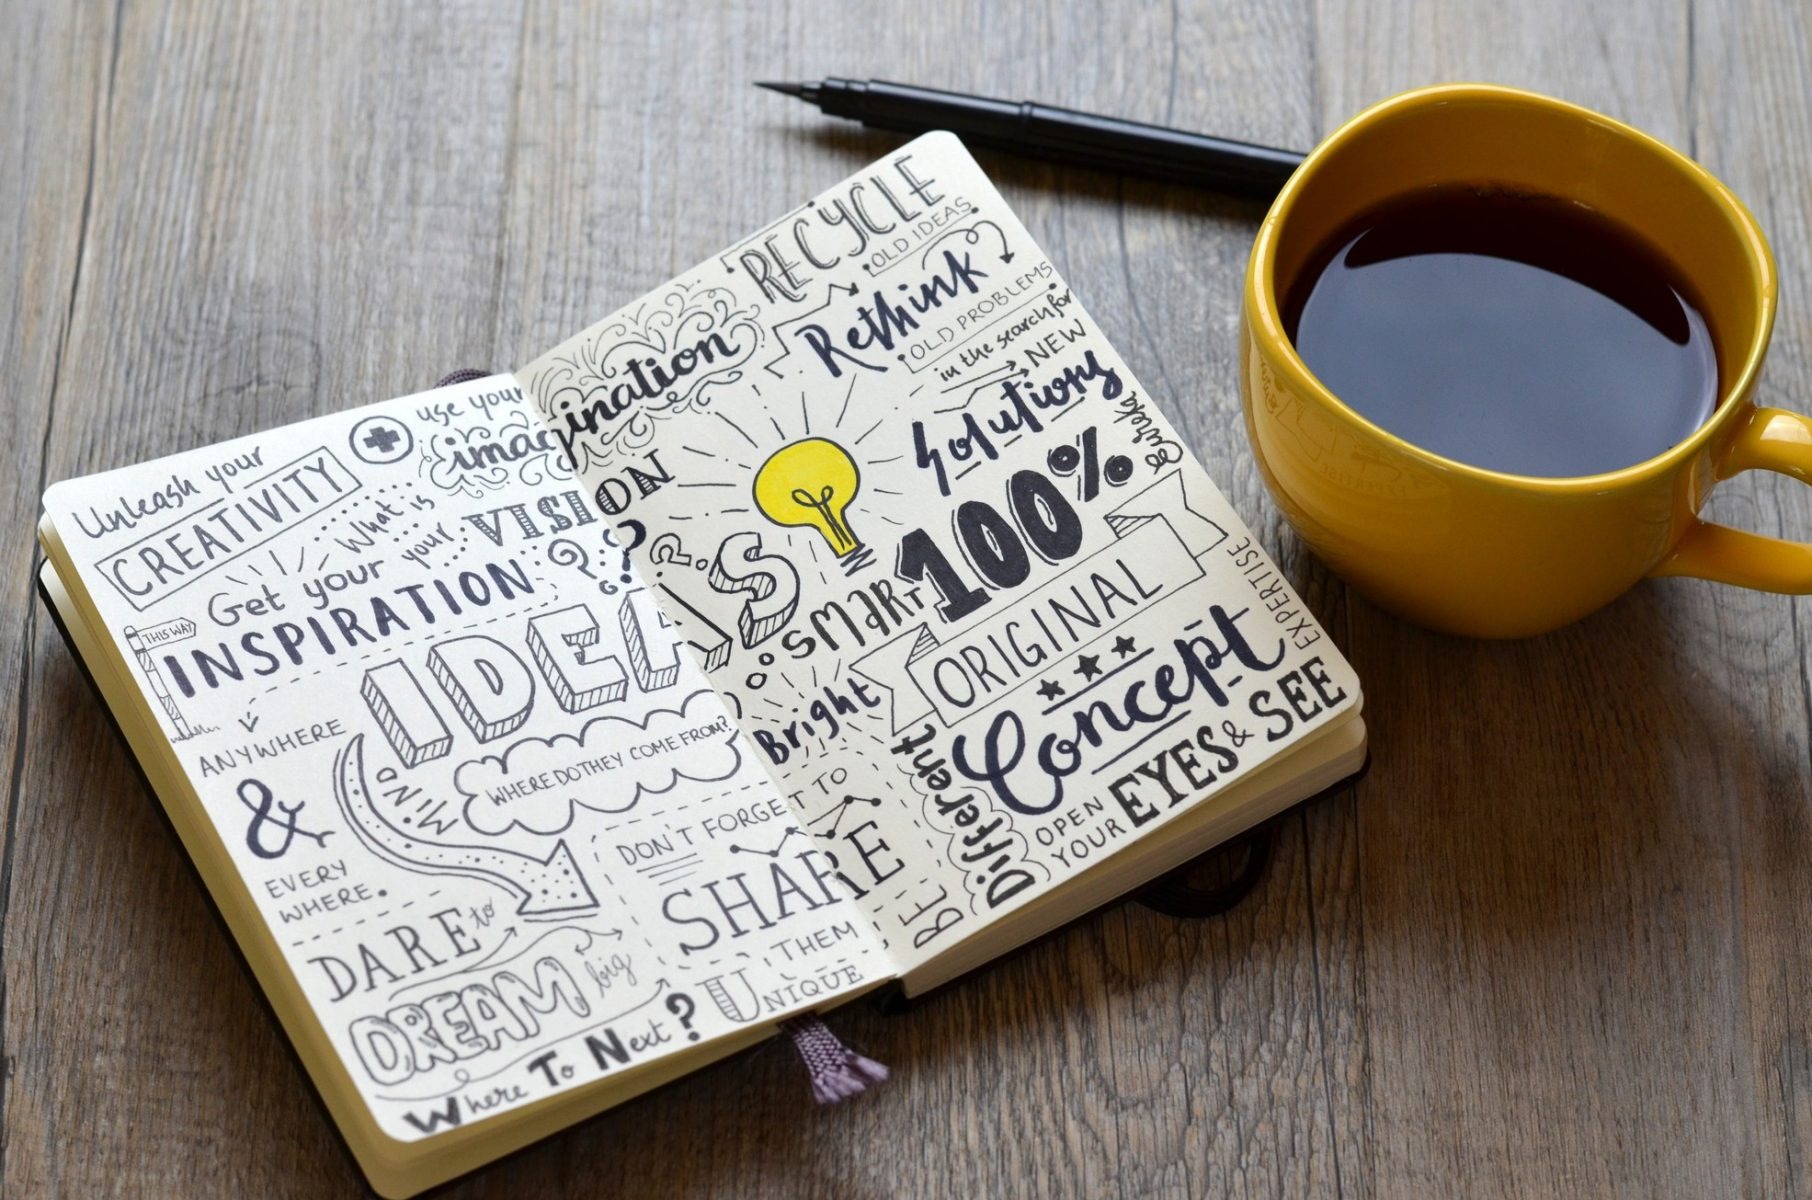 Unleash your
CREATIVITY
use your
imagination
What is
your
VISION
??
Get your
INSPIRATION
THIS WAY
ANYWHERE
&
EVERY
WHERE.
IDEAS
MIND
WHERE DO THEY COME FROM?
DON'T FORGET TO
SHARE
THEM
DARE to
DREAM big
Where To Next?
BE
UNIQUE
RECYCLE
OLD IDEAS
Rethink
OLD PROBLEMS
in the search for
NEW
Solutions
Eureka
SMART
Bright
100%
ORIGINAL
Concept
EXPERTISE
Different
OPEN
YOUR
EYES & SEE